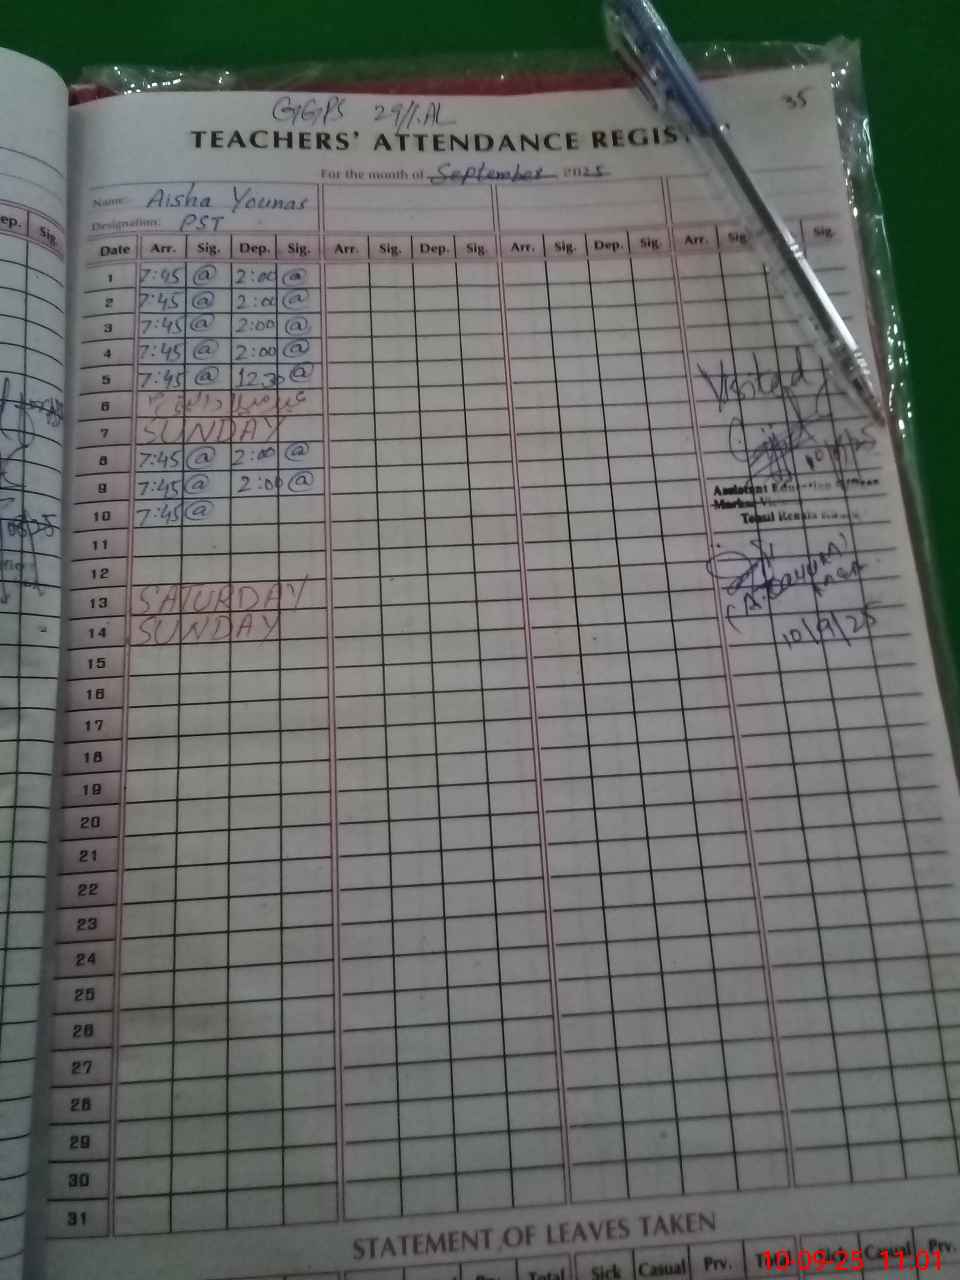 GGPS 29/1.AL
35
TEACHERS' ATTENDANCE REGIST
For the month of September 2025
Name: Aisha Younas
Designation: PST
Date Arr. Sig. Dep. Sig. Arr. Sig. Dep. Sig. Arr. Sig. Dep. Sig. Arr. Sig. Sig.
1 7:45 @ 2:00 @
2 7:45 @ 2:00 @
3 7:45 @ 2:00 @
4 7:45 @ 2:00 @
5 7:45 @ 12:30 @
6 عید میلادالنبیؐ
7 SUNDAY
8 7:45 @ 2:00 @
9 7:45 @ 2:00 @
10 7:45 @
11
12
13 SATURDAY
14 SUNDAY
15
16
17
18
19
20
21
22
23
24
25
26
27
28
29
30
31
Visited
10/9/25
Assistant Education Officer
Markaz
Tehsil Renala Khurd
10/9/25
STATEMENT OF LEAVES TAKEN
Total Sick Casual Prv. Sick Casual Prv.
ep. Sig.
10-09-25 11:01